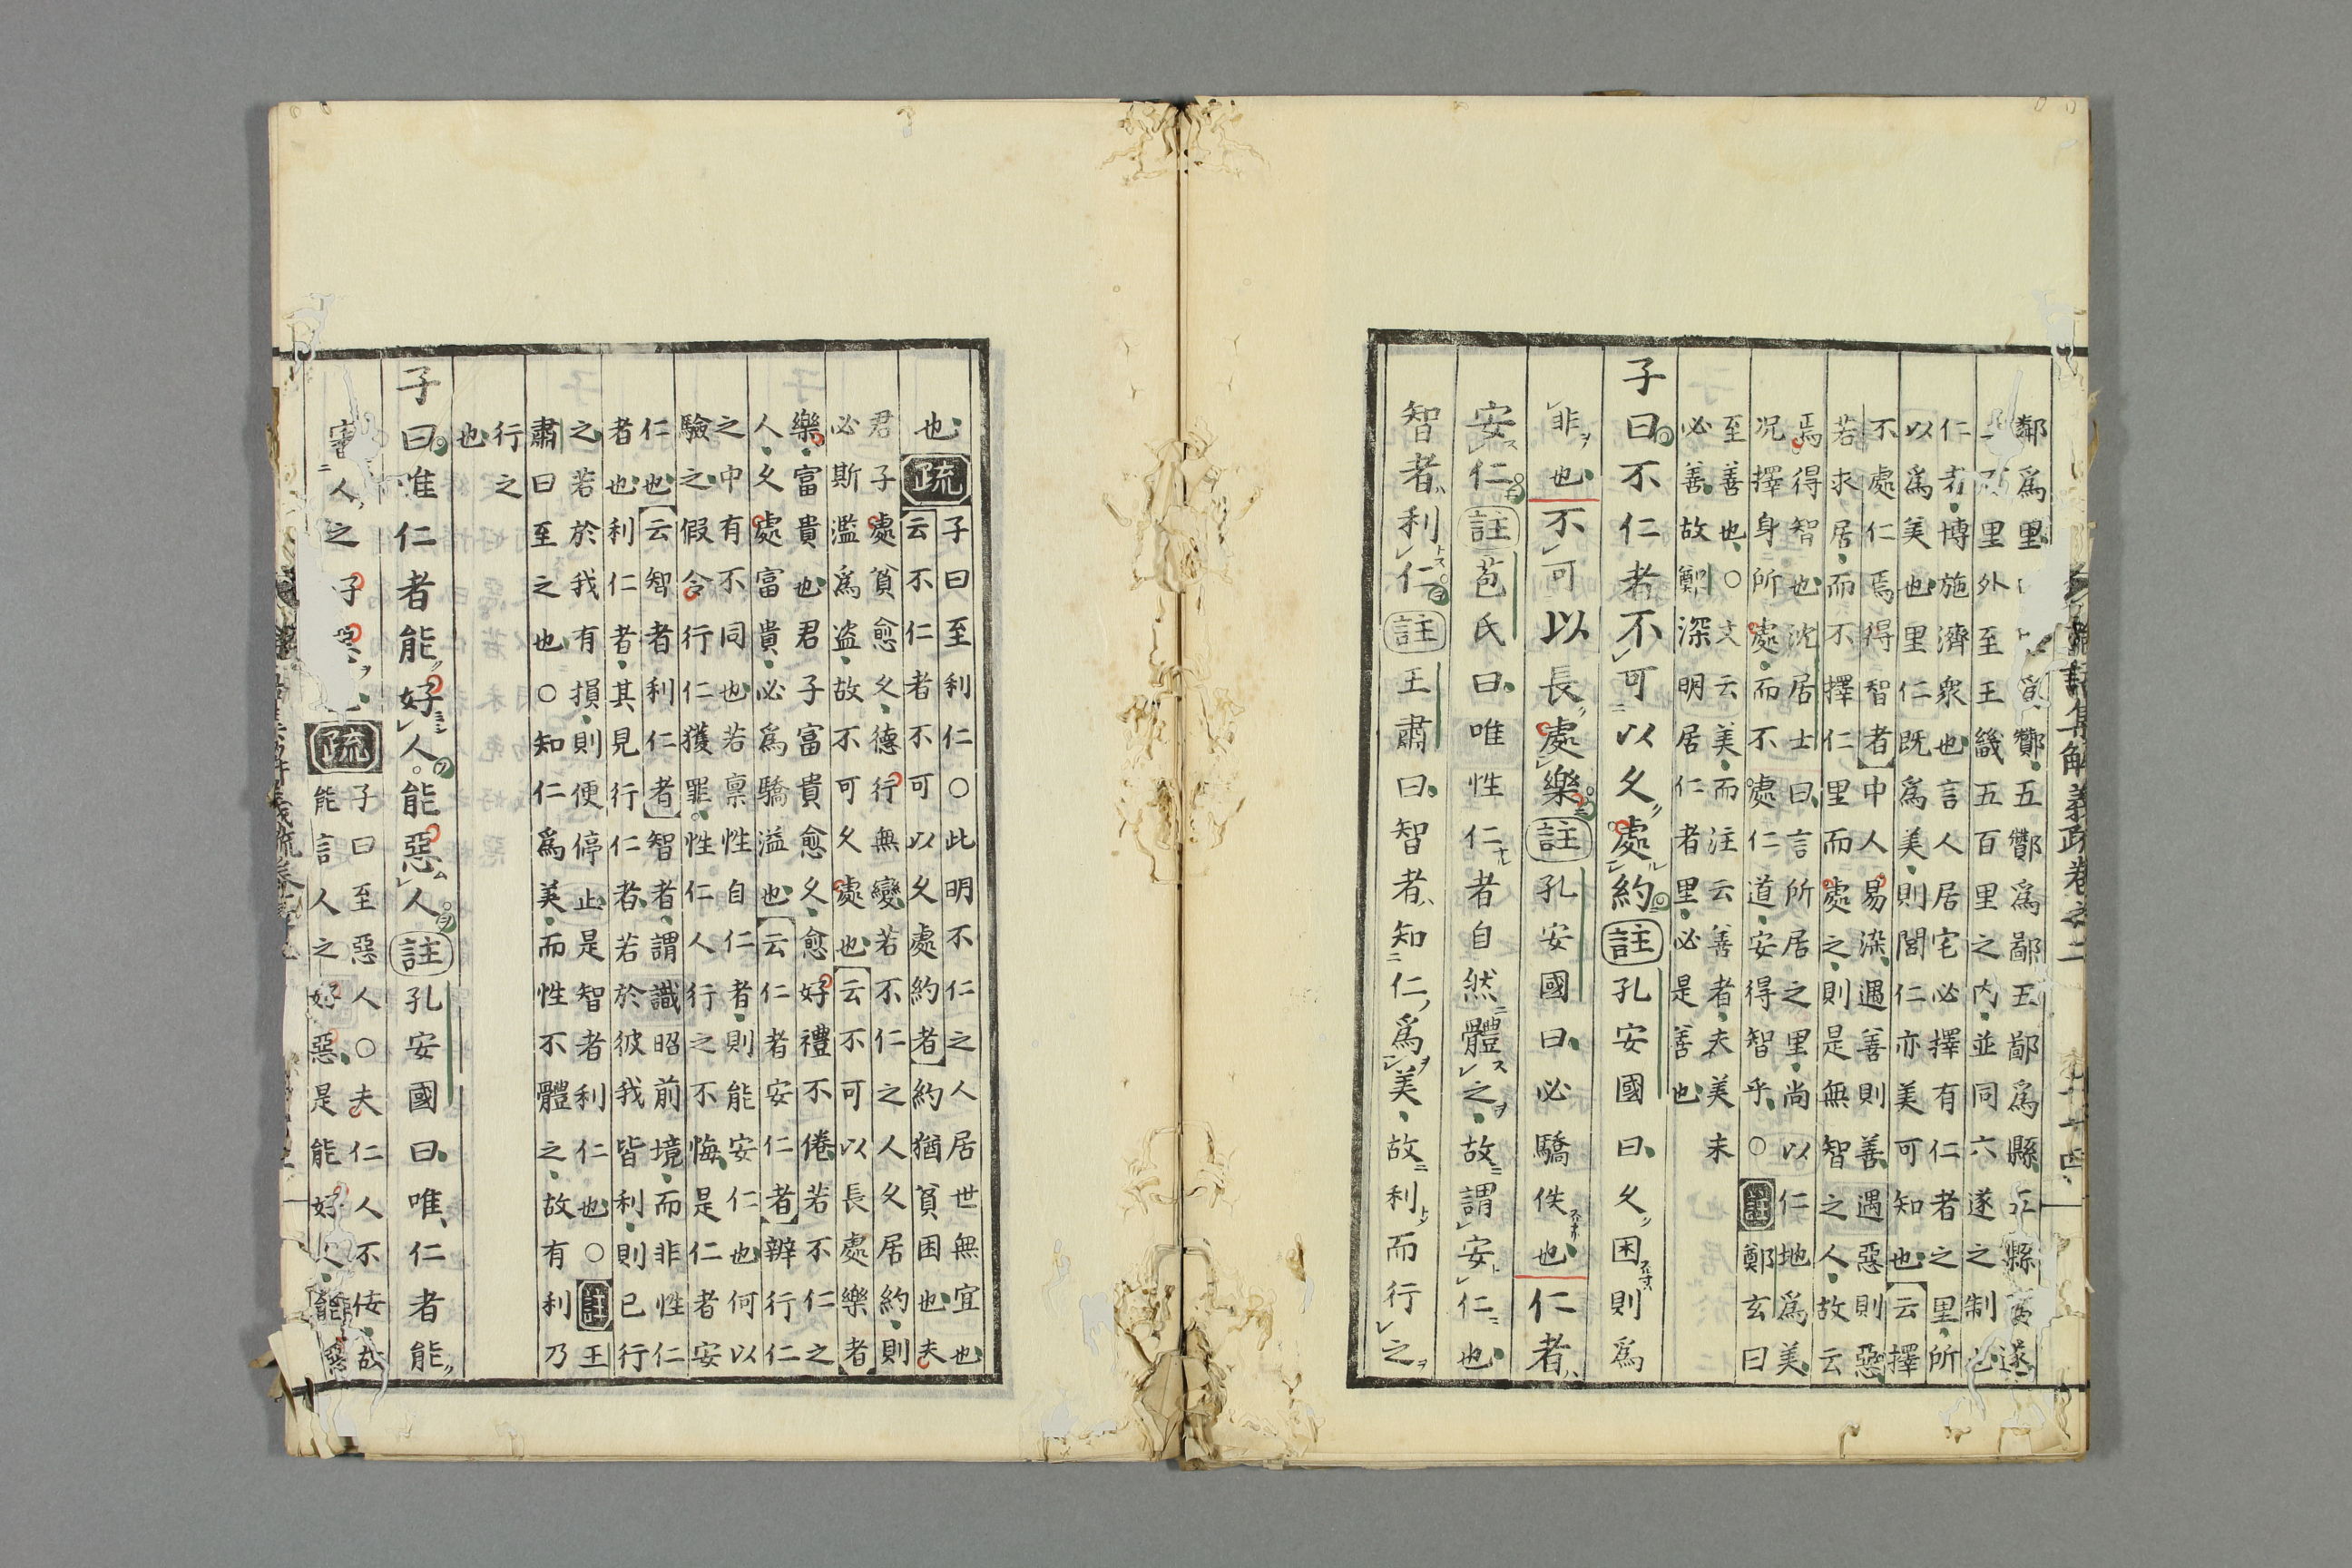 鄰爲里
酇五酇爲鄙五鄙爲縣五縣爲遂
里外至王畿五百里之内並同六遂之制也
仁者博施濟衆也言人居宅必擇有仁者之里所
以爲美也里仁既爲美則閭仁亦美可知也云擇
不處仁焉得智者中人易染遇善則善遇惡則惡
若求居而不擇仁里而處之則是無智之人故云
焉得智也沈居士曰言所居之里尚以仁地爲美
況擇身所處而不處仁道安得智乎○註鄭玄曰
至善也○文云美而注云善者夫美未
必善故鄭深明居仁者里必是善也
子曰不仁者不可以久處約註孔安國曰久困則爲
非也不可以長處樂註孔安國曰必驕佚也仁者
安仁註苞氏曰唯性仁者自然體之故謂安仁也
智者利仁註王肅曰智者知仁爲美故利而行之
也疏子曰至利仁○此明不仁之人居世無宜也
云不仁者不可以久處約者約猶貧困也夫
君子處貧愈久德行無變若不仁之人久居約則
必斯濫爲盜故不可久處也云不可以長處樂者
樂富貴也君子富貴愈久愈好禮不倦若不仁之
人久處富貴必爲驕溢也云仁者安仁者辨行仁
之中有不同也若稟性自仁者則能安仁也何以
驗之假令行仁獲罪性仁人行之不悔是仁者安
仁也云智者利仁者智者謂識昭前境而非性仁
者也利仁者其見行仁者若於彼我皆利則已行
之若於我有損則便停止是智者利仁也○註王
肅曰至之也○知仁爲美而性不體之故有利乃
行之
也
子曰唯仁者能好人能惡人註孔安國曰唯仁者能
審人之好惡疏子曰至惡人○夫仁人不佞故
能言人之好惡是能好人能惡